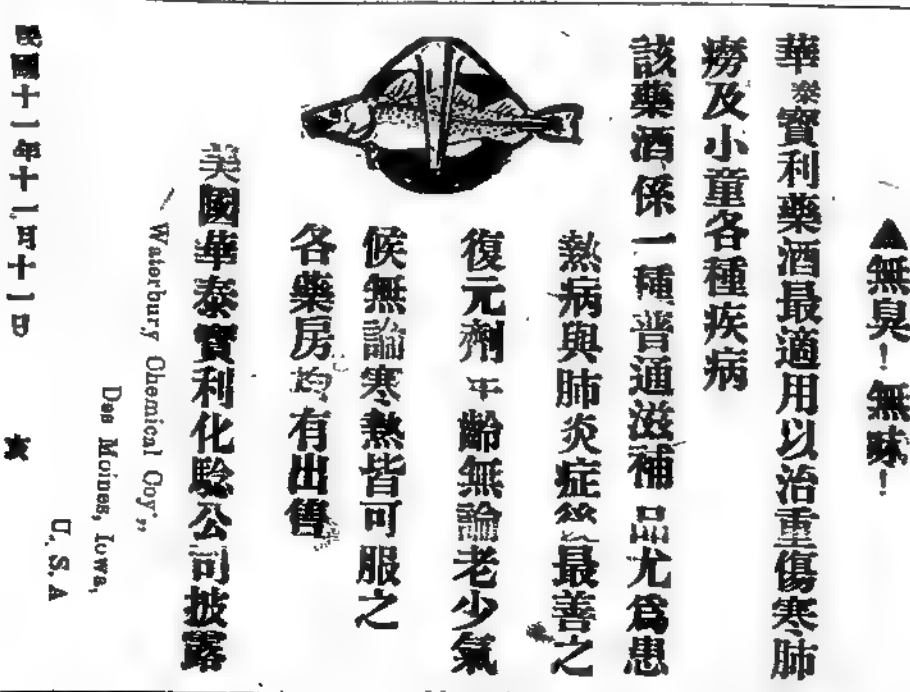 ▲無臭！無味！
華泰寶利藥酒最適用以治重傷寒肺
癆及小童各種疾病
該藥酒係一種普通滋補品尤爲患
熱病與肺炎症後最善之
復元劑年齡無論老少氣
候無論寒熱皆可服之
各藥房均有出售
美國華泰寶利化驗公司披露
Waterbury Chemical Coy.,
Des Moines, Iowa,
U.S.A
民國十一年十二月十一日